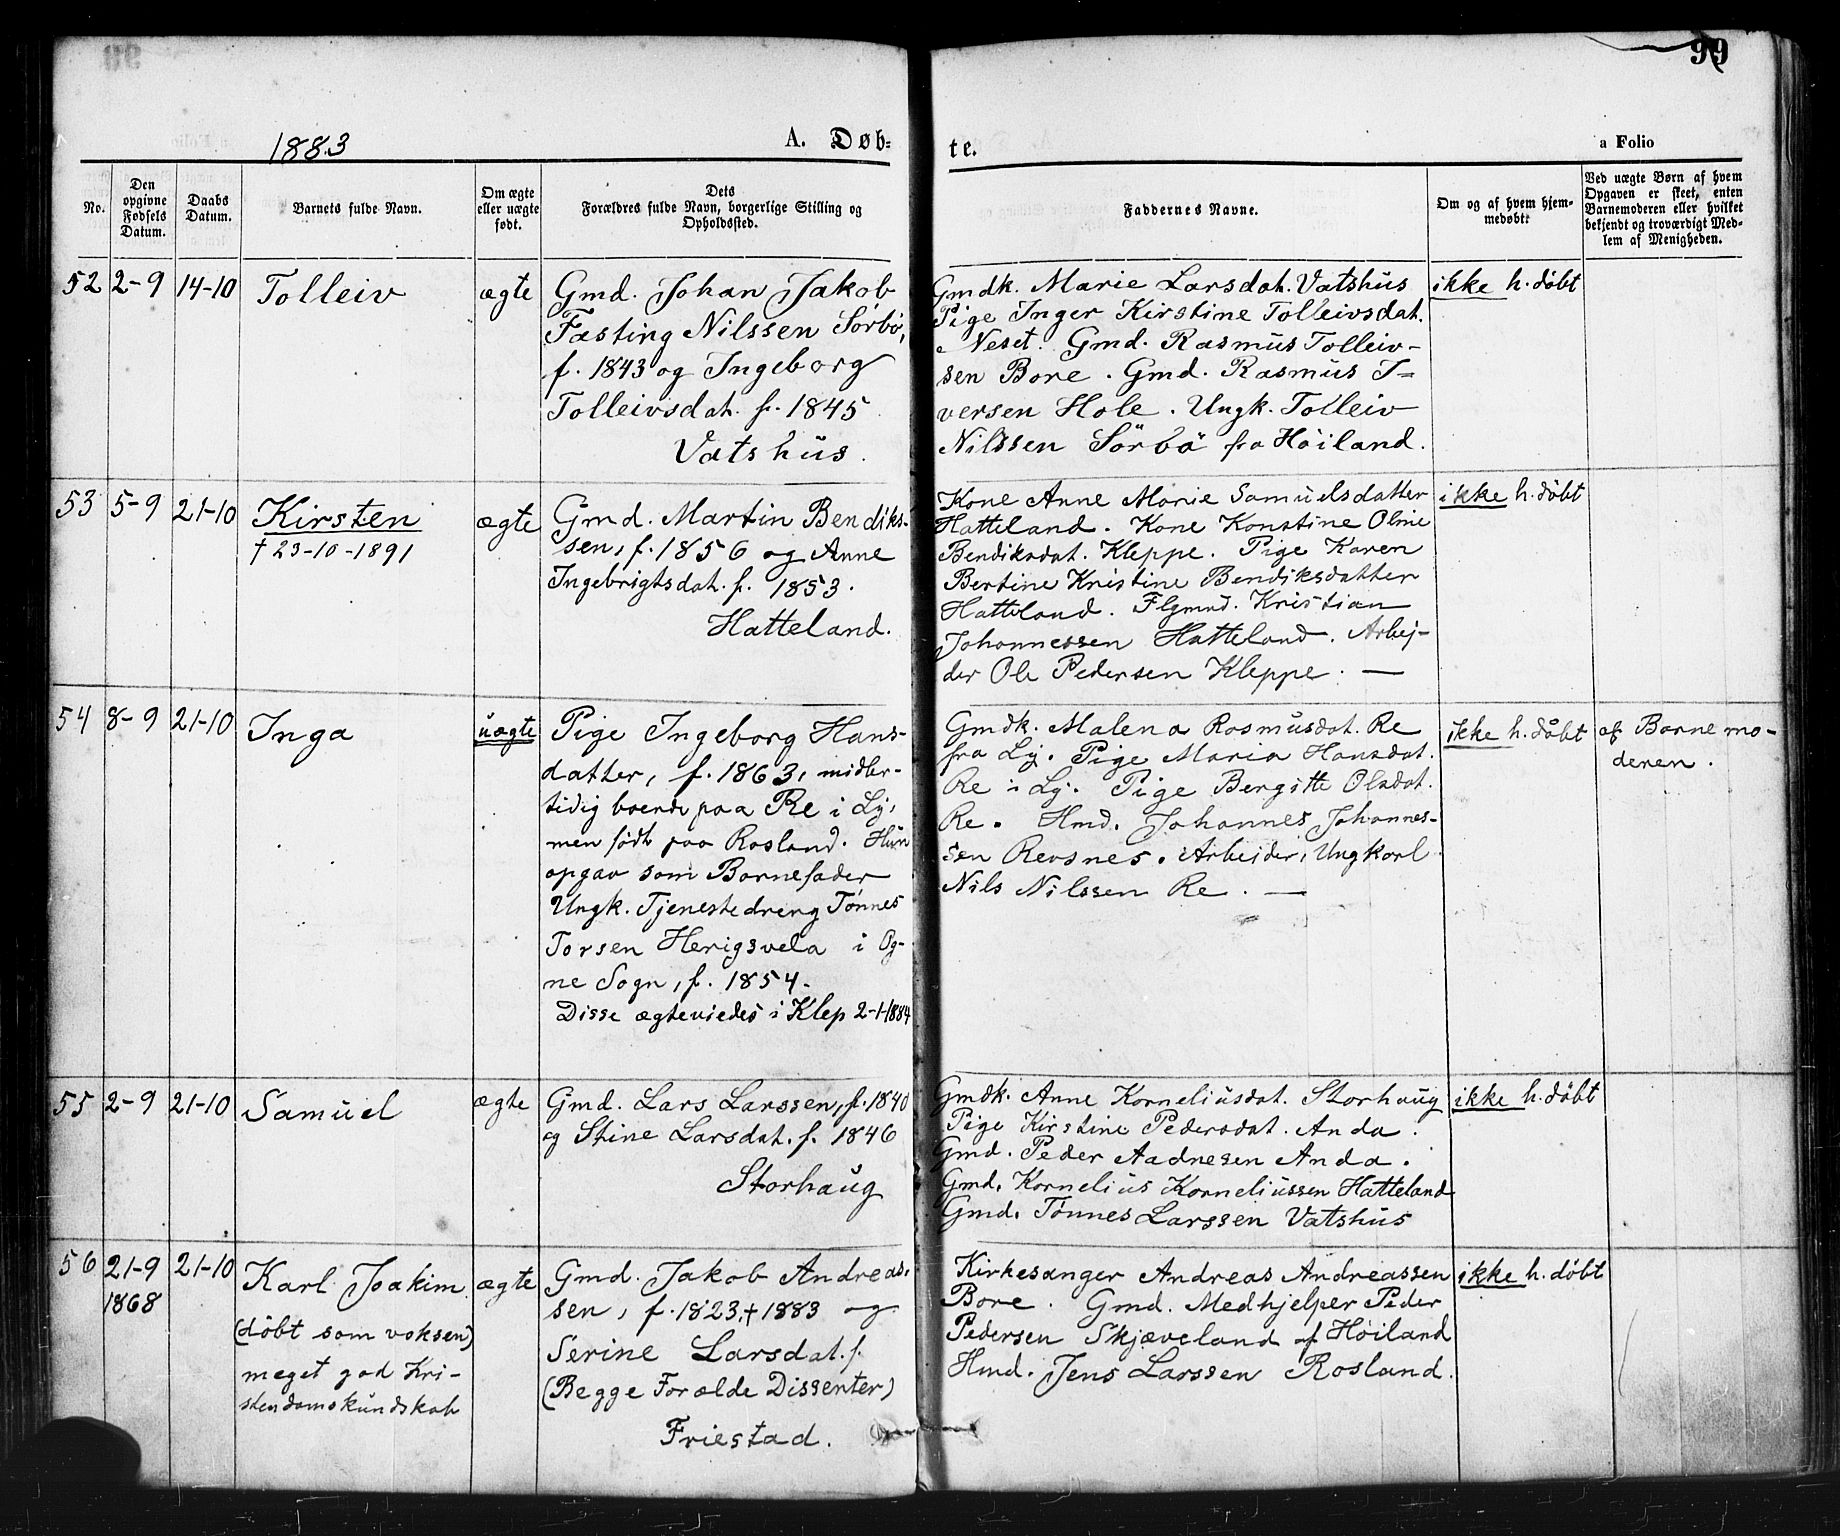 99
1883
A. Døb-
te.
a Folio
No.
Den opgivne Fødsels Datum.
Daabs Datum.
Barnets fulde Navn.
Om ægte eller uægte født.
Dets
Forældres fulde Navn, borgerlige Stilling og
Opholdssted.
Faddernes Navne.
Om og af hvem hjem-
medøbt?
Ved uægte Børn af hvem
Opgaven er skeet, enten
Barnemoderen eller hvilket
bekjendt og troværdigt Med-
lem af Menigheden.
52 2-9 14-10 Tolleiv ægte
Gmd. Johan Jakob
Fæsting Nilssen Sörbö,
f. 1843 og Ingeborg
Tolleivsdat. f. 1845
Vatshus.
Gmdk. Marie Larsdat. Vatshus
Pige Inger Kirstine Tolleivsdat.
Neset. Gmd. Rasmus Tolleiv-
sen Bore. Gmd. Rasmus I=
versen Hole. Ungk. Tolleiv
Nilssen Sörbö fra Höiland.
ikke h. döbt
53 5-9 21-10 Kirsten ægte
† 23-10-1891
Gmd. Martin Bendiks-
sen, f. 1856 og Anne
Ingebrigtsdat. f. 1853.
Hatteland.
Kone Anne Marie Samuelsdatter
Hatteland. Kone Konstine Oline
Bendiksdat. Kleppe. Pige Karen
Bertine Kristine Bendiksdatter
Hatteland. Flgmnd. Kristian
Johannessen Hatteland. Arbej-
der Ole Pedersen Kleppe. —
ikke h. döbt
54 8-9 21-10 Inga uægte
Pige Ingeborg Hans-
datter, f. 1863, midler-
tidig boende paa Re i Ly,
men födt paa Rosland. Hun
opgav som Barnefader
Ungk. Tjenestedreng Tönnes
Torsen Herigsvela i Og-
ne Sogn, f. 1854.
Disse ægteviedes i Klep 2-1-1884
Gmdk. Malena Rasmusdat. Re
fra Ly. Pige Maria Hansdat.
Re i Ly. Pige Bergitte Olsdat.
Re. Hmd. Johannes Johannes-
sen Revsnes. Arbeider, Ungkarl
Nils Nilssen Re. —
ikke h. döbt
af Barnemo-
deren.
55 2-9 21-10 Samuel ægte
Gmd. Lars Larssen, f. 1840
og Stine Larsdat. f. 1846
Storhaug
Gmdk. Anne Korneliusdat. Storhaug
Pige Kirstine Pedersdat. Anda.
Gmd. Peder Aadnesen Anda.
Gmd. Kornelius Korneliussen Hatteland
Gmd. Tönnes Larssen Vatshus
ikke h. döbt
56 21-9 21-10 Karl Joakim ægte
1868
(döbt som voksen)
meget god Kri-
stendomskundskab
Gmd. Jakob Andreas-
sen, f. 1823, † 1883 og
Serine Larsdat. f.
(Begge Forælde Dissenter)
Friestad.
Kirkesanger Andreas Andreassen
Bore. Gmd. Medhjelper Peder
Pedersen Skjæveland af Höiland
Hmd. Jens Larssen Rosland.
ikke h. döbt